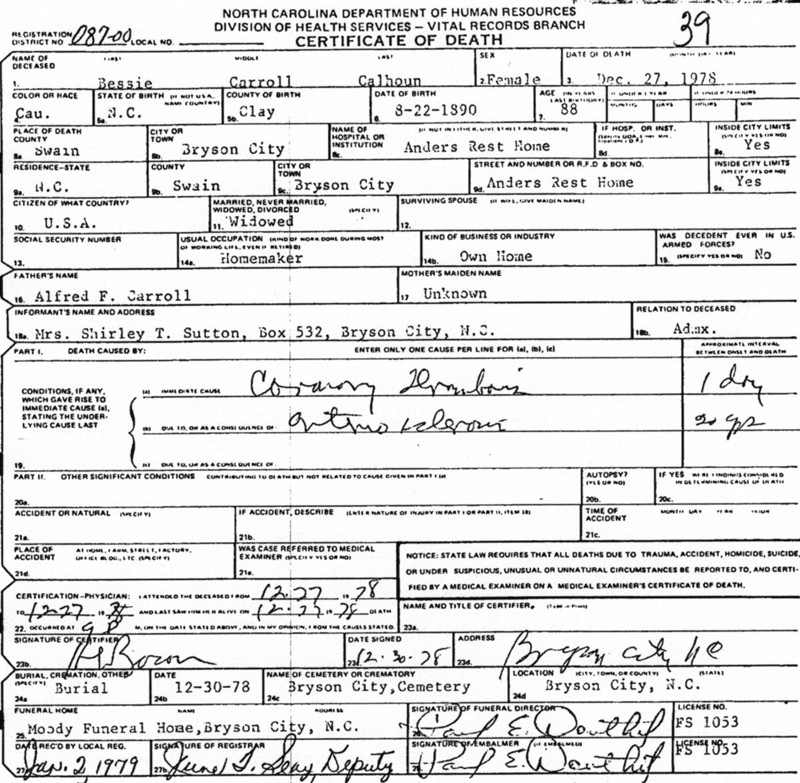 NORTH CAROLINA DEPARTMENT OF HUMAN RESOURCES
DIVISION OF HEALTH SERVICES – VITAL RECORDS BRANCH
CERTIFICATE OF DEATH
39
REGISTRATION DISTRICT NO. 087-00 LOCAL NO.
NAME OF DECEASED FIRST MIDDLE LAST SEX DATE OF DEATH (MONTH DAY YEAR)
1. Bessie Carroll Calhoun 2. Female 3. Dec. 27, 1978
COLOR OR RACE STATE OF BIRTH (IF NOT U.S.A. NAME COUNTRY) COUNTY OF BIRTH DATE OF BIRTH AGE (IN YEARS LAST BIRTHDAY) IF UNDER 1 YEAR MONTHS DAYS IF UNDER 24 HOURS HOURS MIN
4. Cau. 5a. N.C. 5b. Clay 6. 8-22-1890 7. 88
PLACE OF DEATH COUNTY CITY OR TOWN NAME OF HOSPITAL OR INSTITUTION (IF NOT IN EITHER, GIVE STREET AND NUMBER) IF HOSP. OR INST. INSIDE CITY LIMITS (SPECIFY YES OR NO)
8a. Swain 8b. Bryson City 8c. Anders Rest Home 8d 8e. Yes
RESIDENCE-STATE COUNTY CITY OR TOWN STREET AND NUMBER OR R.F.D & BOX NO. INSIDE CITY LIMITS (SPECIFY YES OR NO)
9a. N.C. 9b. Swain 9c. Bryson City 9d. Anders Rest Home 9e. Yes
CITIZEN OF WHAT COUNTRY? MARRIED, NEVER MARRIED, WIDOWED, DIVORCED (SPECIFY) SURVIVING SPOUSE (IF WIFE, GIVE MAIDEN NAME)
10. U.S.A. 11. Widowed 12.
SOCIAL SECURITY NUMBER USUAL OCCUPATION (KIND OF WORK DONE DURING MOST OF WORKING LIFE, EVEN IF RETIRED) KIND OF BUSINESS OR INDUSTRY WAS DECEDENT EVER IN U.S. ARMED FORCES?
13. 14a. Homemaker 14b. Own Home 15. (SPECIFY YES OR NO) No
FATHER'S NAME MOTHER'S MAIDEN NAME
16. Alfred F. Carroll 17 Unknown
INFORMANT'S NAME AND ADDRESS RELATION TO DECEASED
18a. Mrs. Shirley T. Sutton, Box 532, Bryson City, N.C. 18b. Admx.
PART I. DEATH CAUSED BY: ENTER ONLY ONE CAUSE PER LINE FOR (a), (b), (c) APPROXIMATE INTERVAL BETWEEN ONSET AND DEATH
CONDITIONS, IF ANY, WHICH GAVE RISE TO IMMEDIATE CAUSE (a), STATING THE UNDERLYING CAUSE LAST
(a) IMMEDIATE CAUSE Coronary Thrombosis 1 day
(b) DUE TO, OR AS A CONSEQUENCE OF Arteriosclerosis 20 yrs
19. (c) DUE TO, OR AS A CONSEQUENCE OF
PART II. OTHER SIGNIFICANT CONDITIONS CONTRIBUTING TO DEATH BUT NOT RELATED TO CAUSE GIVEN IN PART I (a) AUTOPSY? (YES OR NO) IF YES WERE FINDINGS CONSIDERED IN DETERMINING CAUSE OF DEATH
20a. 20b. 20c.
ACCIDENT OR NATURAL (SPECIFY) IF ACCIDENT, DESCRIBE (ENTER NATURE OF INJURY IN PART I OR PART II, ITEM 18) TIME OF ACCIDENT MONTH DAY YEAR HOUR
21a. 21b. 21c.
PLACE OF ACCIDENT AT HOME, FARM, STREET, FACTORY, OFFICE BLDG., ETC. (SPECIFY) WAS CASE REFERRED TO MEDICAL EXAMINER (SPECIFY YES OR NO)
21d. 21e.
NOTICE: STATE LAW REQUIRES THAT ALL DEATHS DUE TO TRAUMA, ACCIDENT, HOMICIDE, SUICIDE,
OR UNDER SUSPICIOUS, UNUSUAL OR UNNATURAL CIRCUMSTANCES BE REPORTED TO, AND CERTI-
FIED BY A MEDICAL EXAMINER ON A MEDICAL EXAMINER'S CERTIFICATE OF DEATH.
CERTIFICATION-PHYSICIAN: I ATTENDED THE DECEASED FROM 12-27 1978
TO 12-27 1978 AND LAST SAW HIM OR HER ALIVE ON 12-27 1978 DEATH
22. OCCURRED AT 9 P M, ON THE DATE STATED ABOVE, AND IN MY OPINION, FROM THE CAUSES STATED.
NAME AND TITLE OF CERTIFIER, (Type or Print)
23a.
SIGNATURE OF CERTIFIER DATE SIGNED ADDRESS
23b. 23c 12-30-78 23d. Bryson City NC
BURIAL, CREMATION, OTHER (SPECIFY) DATE NAME OF CEMETERY OR CREMATORY LOCATION (CITY, TOWN, OR COUNTY) (STATE)
24a Burial 24b 12-30-78 24c Bryson City,Cemetery 24d Bryson City, N.C.
FUNERAL HOME NAME ADDRESS SIGNATURE OF FUNERAL DIRECTOR LICENSE NO.
25. Moody Funeral Home,Bryson City, N.C. Paul E. Douthit FS 1053
DATE REC'D BY LOCAL REG. SIGNATURE OF REGISTRAR SIGNATURE OF EMBALMER (IF EMBALMED) LICENSE NO.
27a Jan. 2 1979 27b June T. Seay, Deputy Paul E. Douthit FS 1053